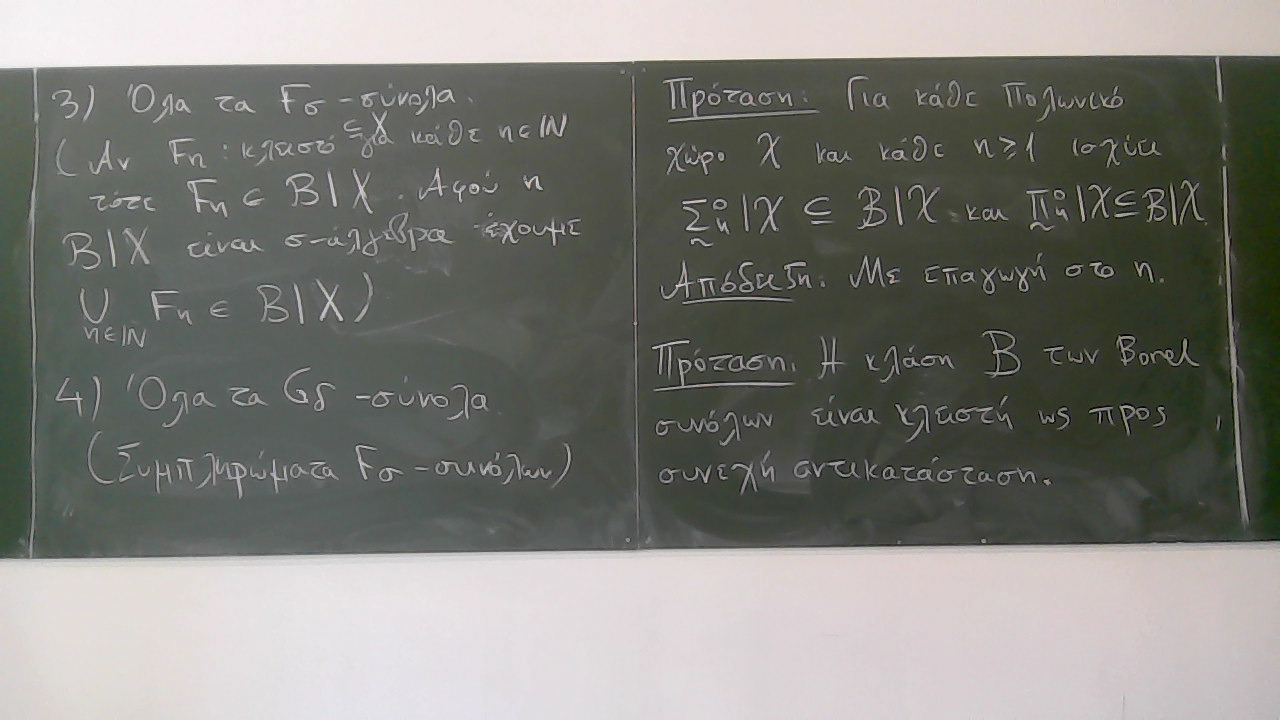 3) Όλα τα Fσ -σύνολα.
(Αν Fη : κλειστό ⊆ X για κάθε n∈ℕ
τότε Fη ∈ B|X. Αφού η
B|X είναι σ-άλγεβρα έχουμε
∪ Fη ∈ B|X)
n∈ℕ
4) Όλα τα Gδ -σύνολα
(Συμπληρώματα Fσ -συνόλων)
Πρόταση: Για κάθε Πολωνικό
χώρο X και κάθε n≥1 ισχύει
Σ⁰ₙ|X ⊆ B|X και Π⁰ₙ|X⊆B|X
Απόδειξη. Με επαγωγή στο n.
Πρόταση. Η κλάση B των Borel
συνόλων είναι κλειστή ως προς
συνεχή αντικατάσταση.